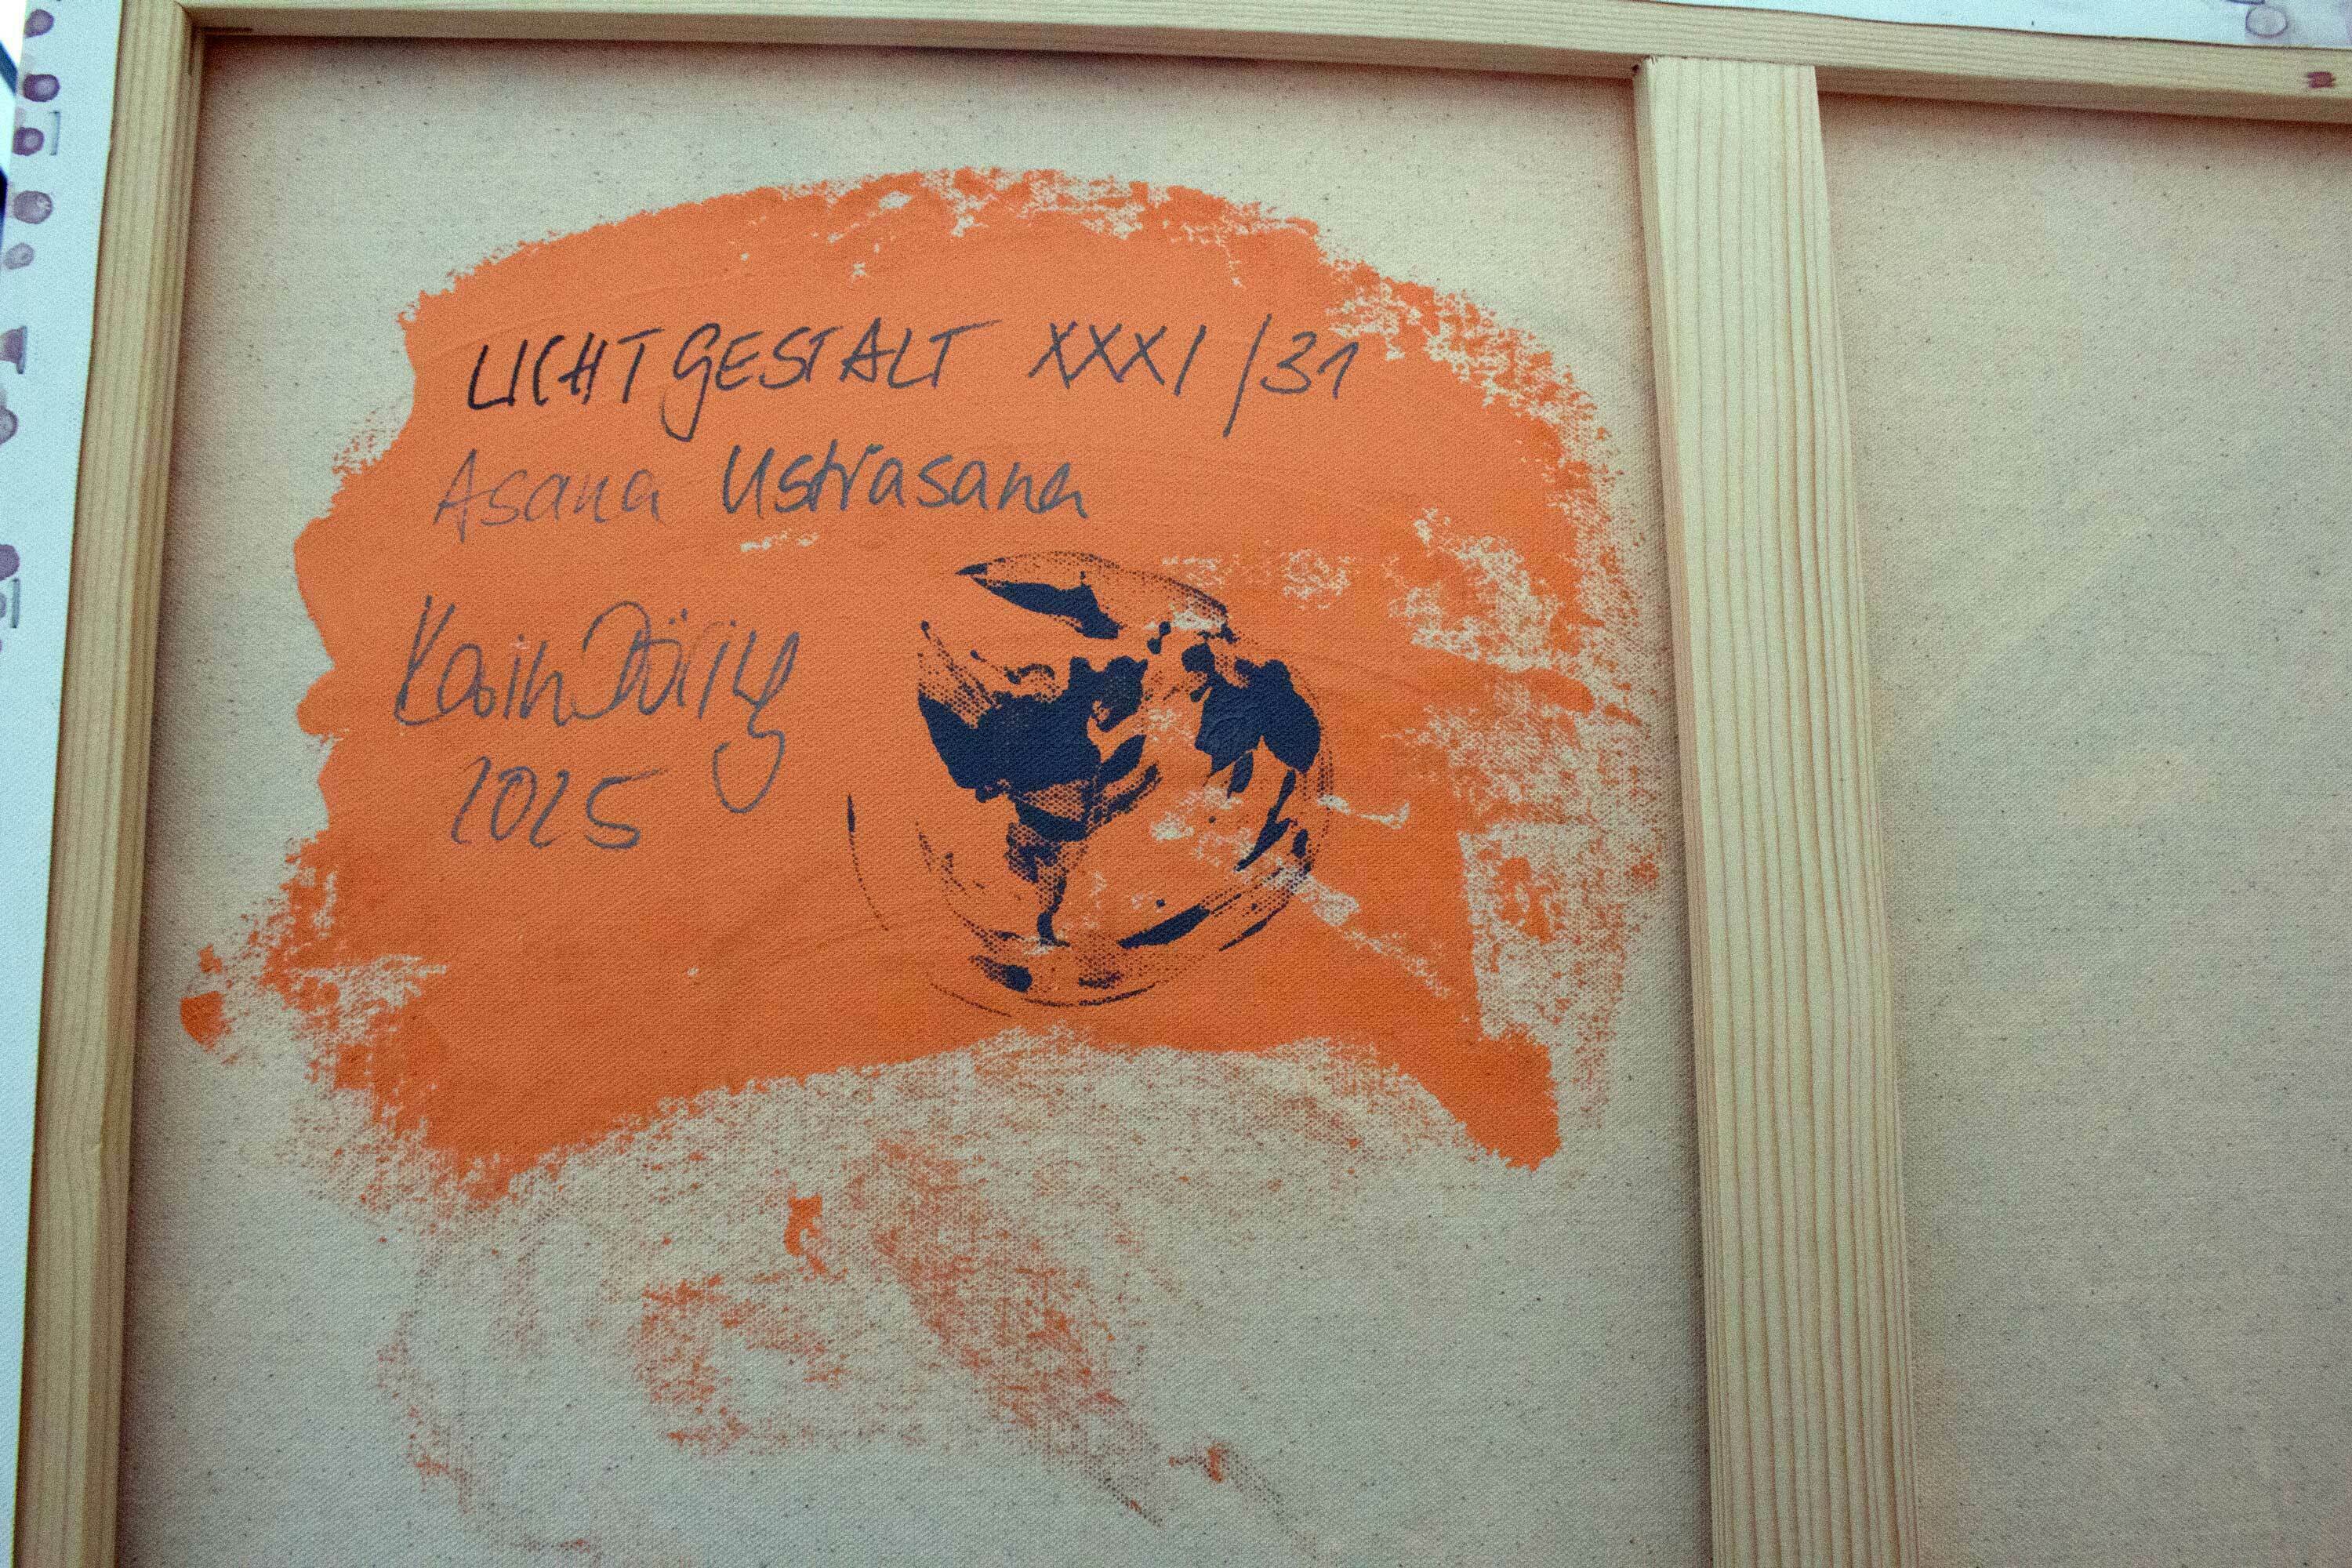 LICHTGESTALT XXXI/31
Asana Ustrasana
Karin Döring
2025